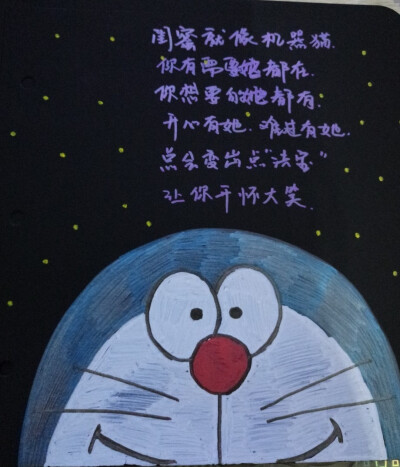 闺蜜就像机器猫.
你有需要她都在.
你想要的她都有.
开心有她.难过有她.
总会变出点"法宝"
让你开怀大笑.